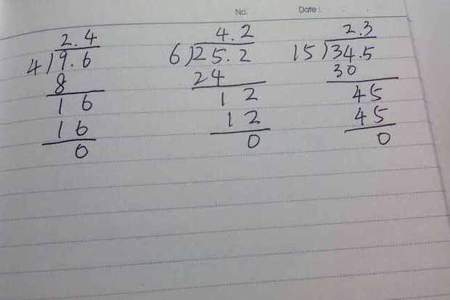 No.
Date :
2.4 4.2 2.3
4)9.6 6)25.2 15)34.5
8 24 30
16 12 45
16 12 45
0 0 0